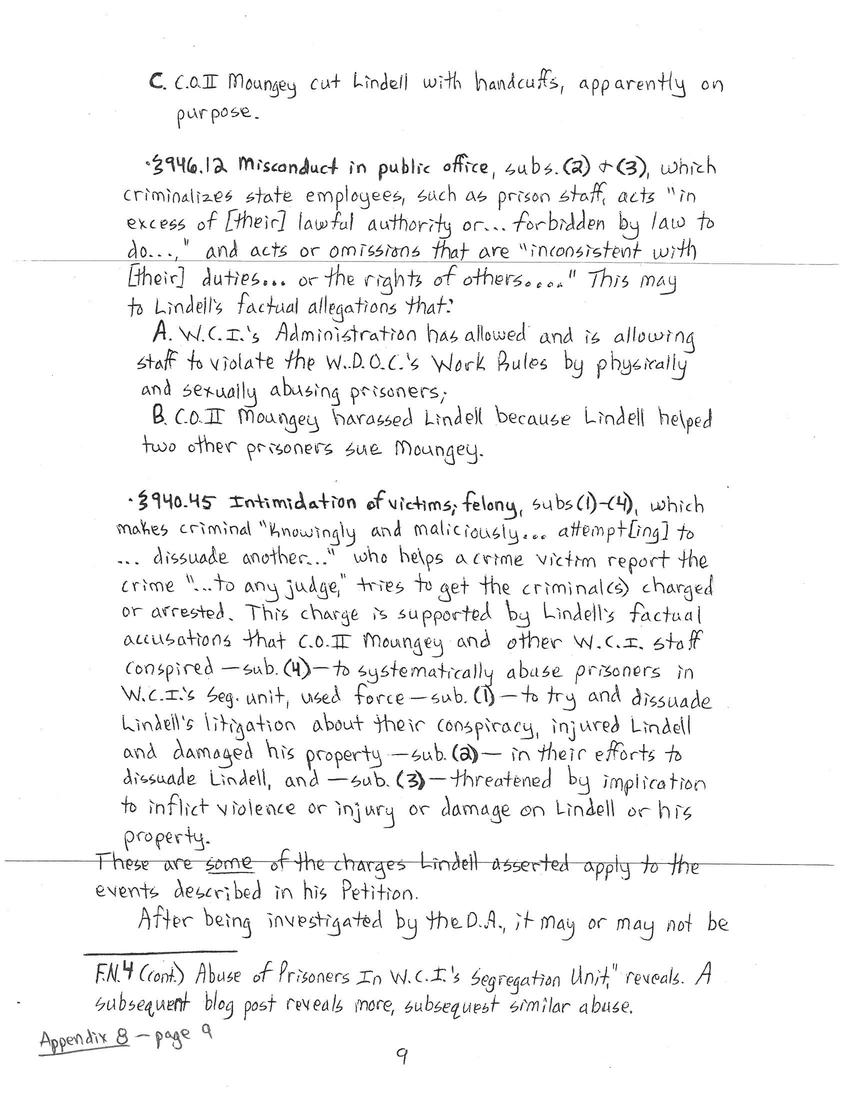 C. C.O.II Moungey cut Lindell with handcuffs, apparently on
purpose.
·§946.12 Misconduct in public office, subs.(2) + (3), which
criminalizes state employees, such as prison staff, acts "in
excess of [their] lawful authority or... forbidden by law to
do...," and acts or omissions that are "inconsistent with
[their] duties... or the rights of others...." This may
to Lindell's factual allegations that:
A. W.C.I.'s Administration has allowed and is allowing
staff to violate the W.D.O.C.'s Work Rules by physically
and sexually abusing prisoners;
B. C.O.II Moungey harassed Lindell because Lindell helped
two other prisoners sue Moungey.
·§940.45 Intimidation of victims; felony, subs(1)-(4), which
makes criminal "Knowingly and maliciously... attempt[ing] to
... dissuade another..." who helps a crime victim report the
crime "...to any judge," tries to get the criminal(s) charged
or arrested. This charge is supported by Lindell's factual
accusations that C.O.II Moungey and other W.C.I. staff
conspired —sub.(4)— to systematically abuse prisoners in
W.C.I.'s Seg. unit, used force —sub.(1)— to try and dissuade
Lindell's litigation about their conspiracy, injured Lindell
and damaged his property —sub.(2)— in their efforts to
dissuade Lindell, and —sub.(3)— threatened by implication
to inflict violence or injury or damage on Lindell or his
property.
These are some of the charges Lindell asserted apply to the
events described in his Petition.
After being investigated by the D.A., it may or may not be
F.N.4 (cont.) Abuse of Prisoners In W.C.I.'s Segregation Unit," reveals. A
subsequent blog post reveals more, subsequest similar abuse.
Appendix 8 — page 9
9